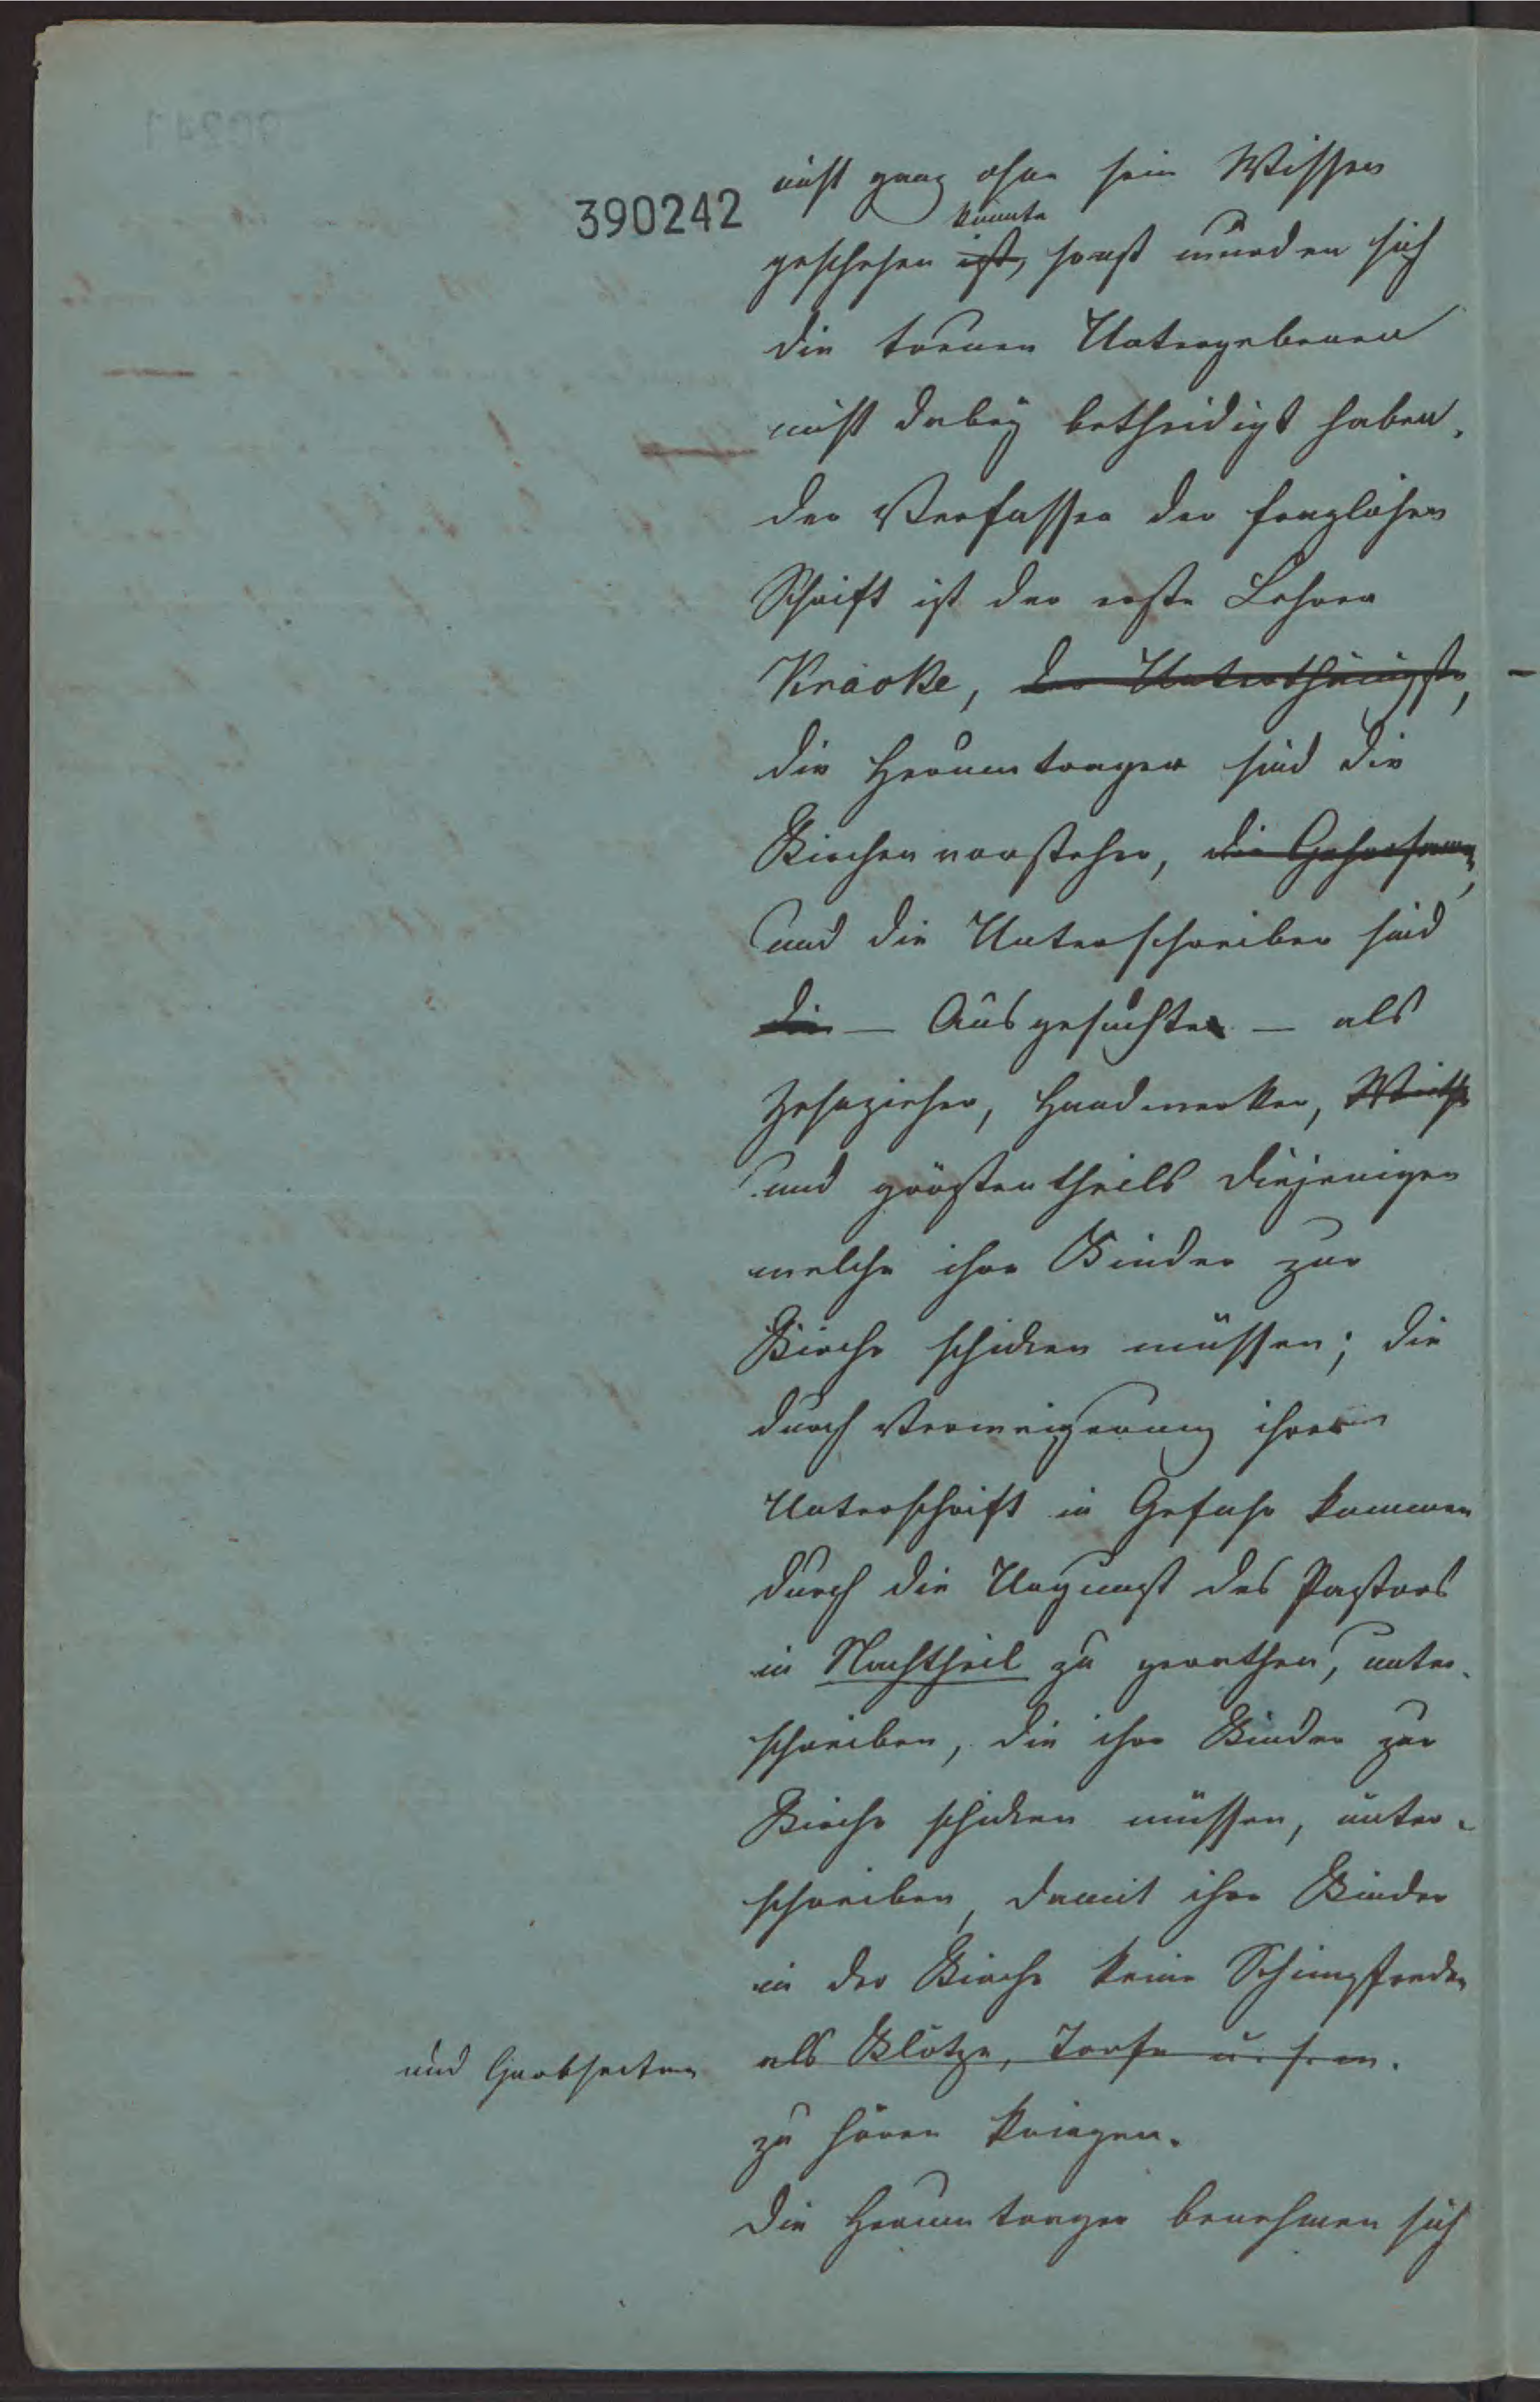 390242
nicht ganz ohne sein Wissen
konnte
geschehen ist, sonst wurden sich
die treuen Untergebenen
nicht dabey betheidigt haben.
der Verfasser der fraglichen
Schrift ist der erste Lehrer
Kracke, der Unterthänigste,
die Herumtrager sind die
Kirchenvorsteher, die Gehorsamen,
und die Unterschreiber sind
die — Ausgesuchte — als
Zehnzieher, Handwerker, Wirthe
und gröstentheils diejenigen
welche ihre Kinder zur
Kirche schicken müssen; die
durch Verweigerung ihrer
Unterschrift in Gefahr kommen
durch die Ungunst des Pastors
in Nachtheil zu gerathen, unter-
schreiben, die ihre Kinder zur
Kirche schicken müssen, unter-
schreiben, damit ihre Kinder
in der Kirche keine Schimpfreden
als Klötze, Torfe u. s. w.
und Grobheiten
zu hören kriegen.
Die Herumtrager benehmen sich